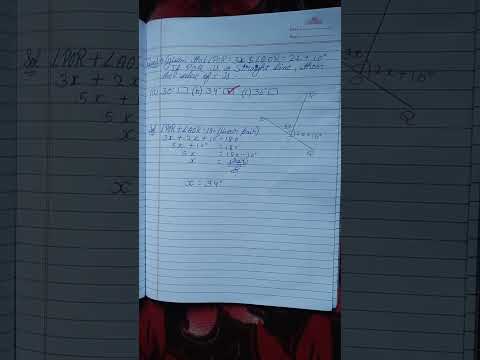 Given that ∠POR = 3x & ∠QOR = 2x + 10°
If POQ is a straight line, then
the value of x is
(a) 30° (b) 34° ✓ (c) 36°
R
3x
2x+10°
Q
Sol ∠POR + ∠QOR = 180 (linear pair)
3x + 2x + 10 = 180
5x + 10° = 180
5x = 180 - 10°
x =
5
x = 34°
Sol ∠POR + ∠QOR
3x + 2x
5x +
5x
x
3x
2x + 10°
Q